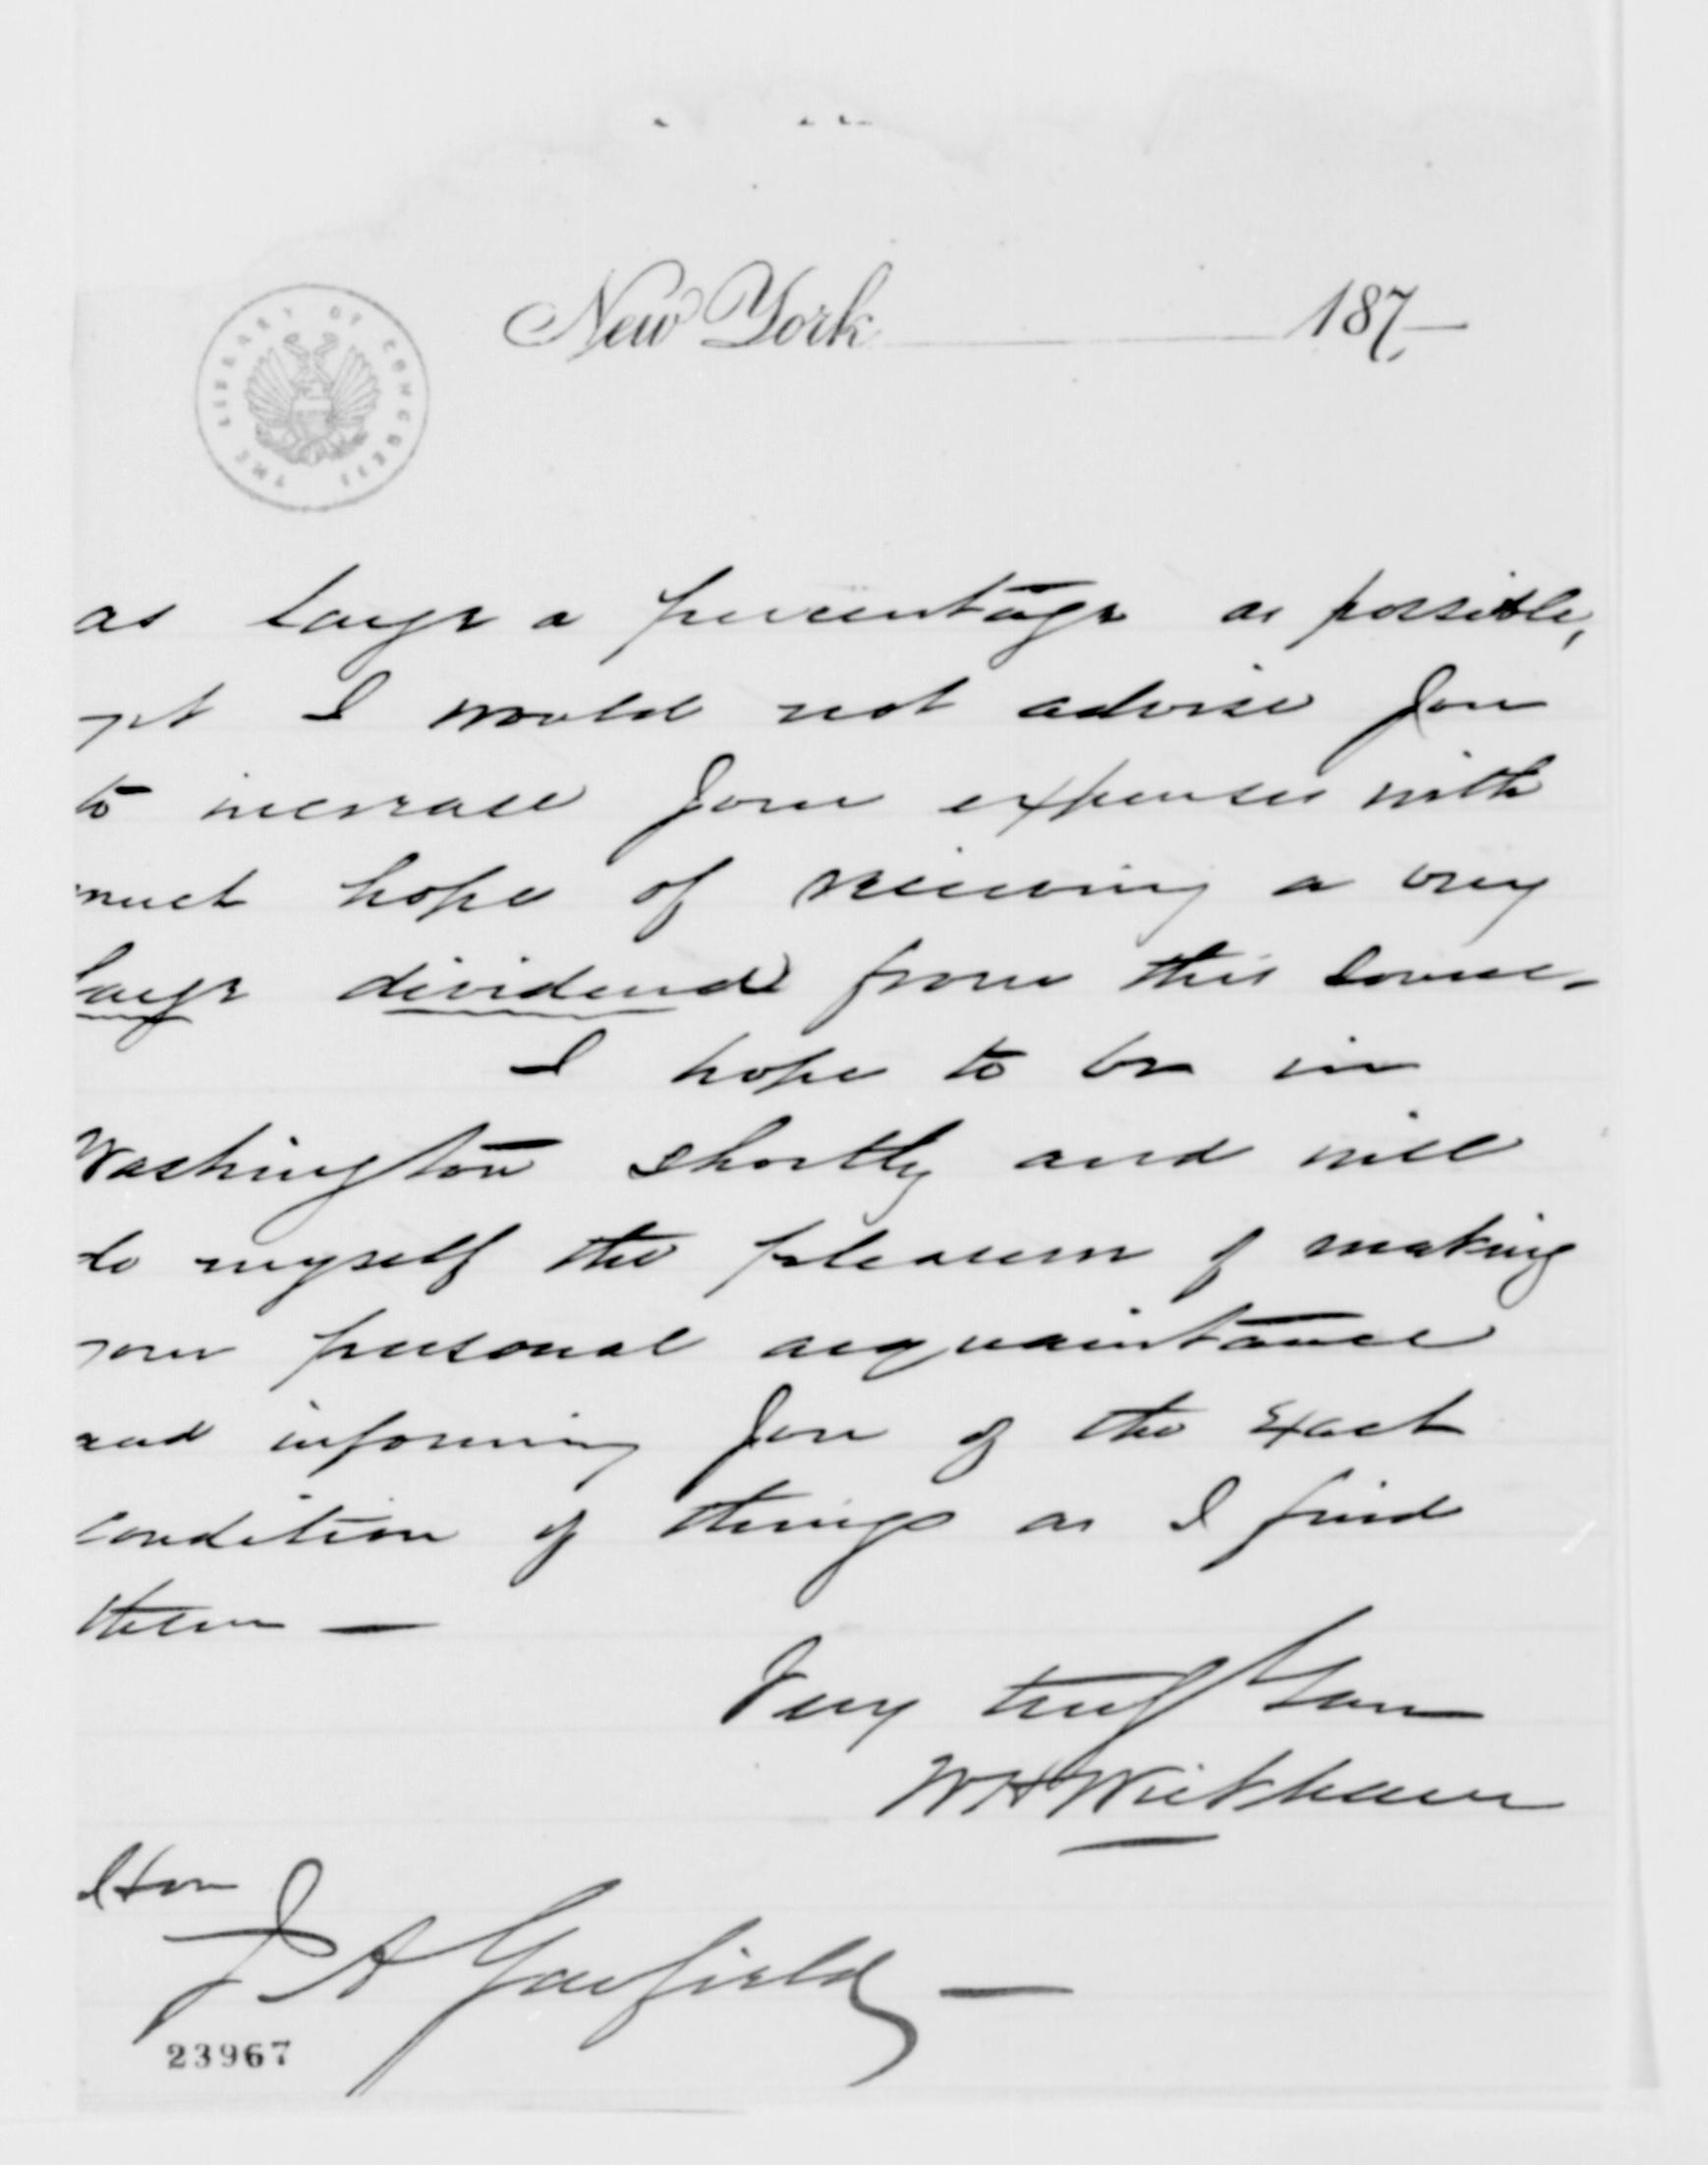 New York 187
THE LIBRARY OF CONGRESS
as large a percentage as possible,
yet I would not advise you
to increase your expenses with
much hope of receiving a very
large dividend from this source.
I hope to be in
Washington shortly and will
do myself the pleasure of making
your personal acquaintance
and informing you of the exact
condition of things as I find
them —
Very truly Yours
W H Wickham
Hon
J A Garfield —
23967